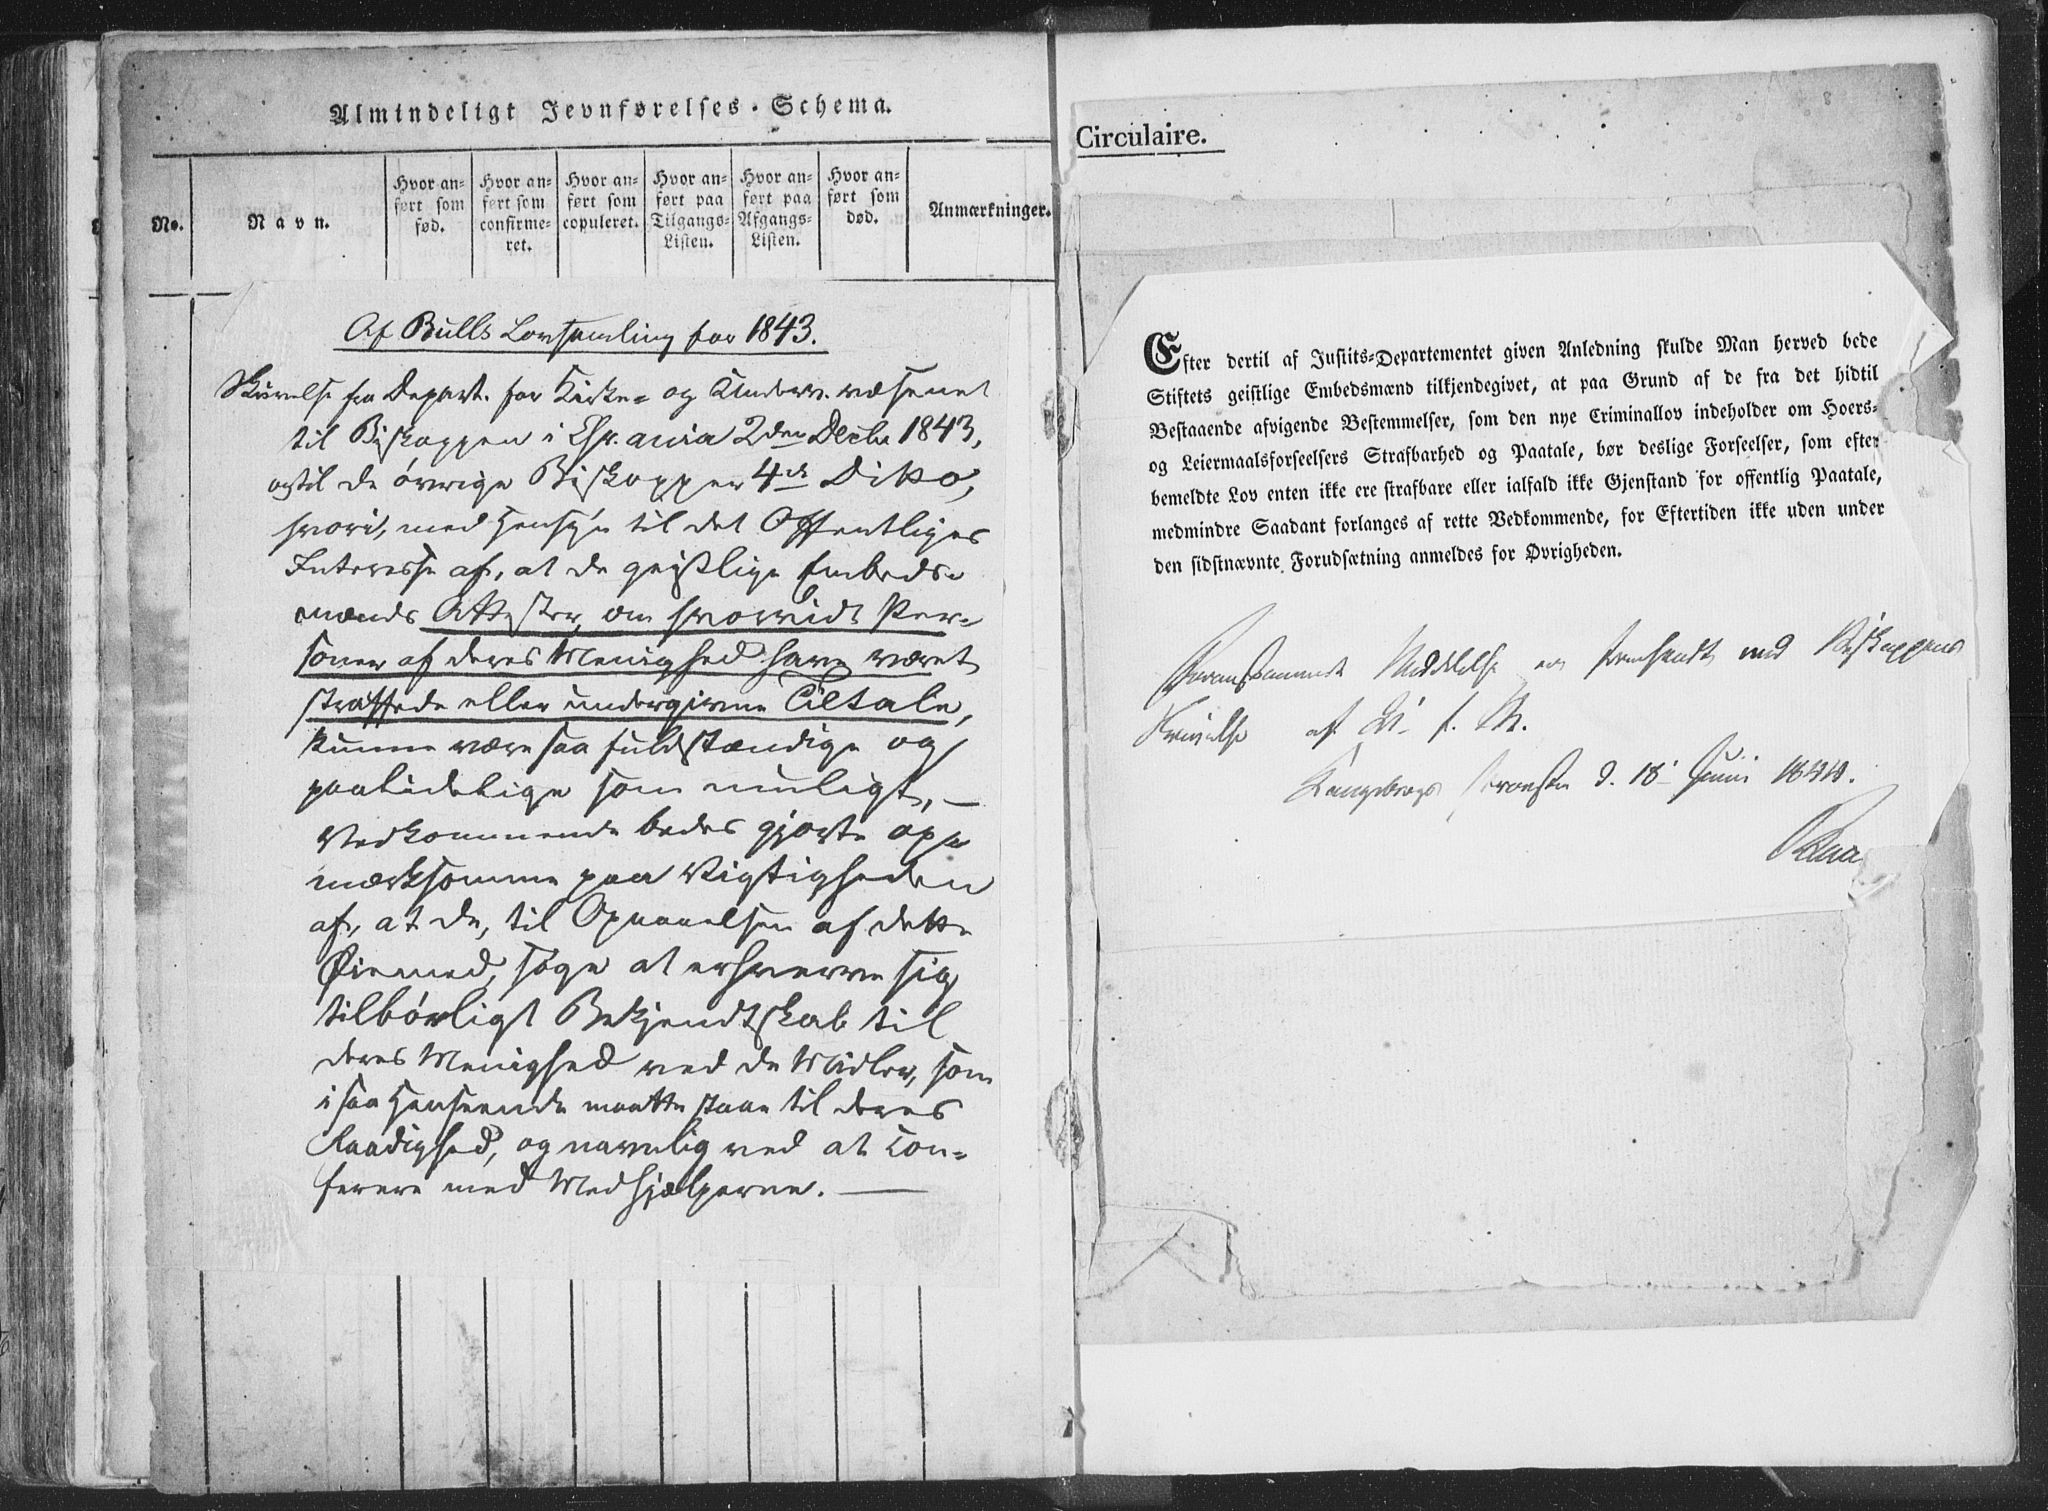 Almindeligt Jevnførelses-Schema.
No.
Navn.
Hvor an-
ført som
fød.
Hvor an-
ført som
confirme-
ret.
Hvor an-
ført som
copuleret.
Hvor an-
ført paa
Tilgangs-
Listen.
Hvor an-
ført paa
Afgangs-
Listen.
Hvor an-
ført som
død.
Anmærkninger.
Af Bulls Lovsamling for 1843.
Skrivelse fra Depart. for Kirke- og Underv. væsenet
til Biskoppen i Chr.ania 2den Decbr 1843,
og til de øvrige Biskopper 4de Ditto,
hvori, med Hensyn til det Offentliges
Interesse af, at de geistlige Embeds-
mænds Attester, om hvorvidt Per-
soner af deres Menighed have været
straffede eller undergivne Tiltale,
kunne være saa fuldstændige og
paalidelige som muligt, —
Vedkommende bedes gjorte op-
mærksomme paa Vigtigheden
af, at de, til Opnaaelsen af dette
Øiemed, søge at erhverve sig
tilbørligt Bekjendtskab til
deres Menighed ved de Midler, som
i saa Henseende maatte staae til deres
Raadighed, og navnlig ved at con-
ferere med Medhjælperne. —
Circulaire.
Efter dertil af Justits-Departementet given Anledning skulde Man herved bede
Stiftets geistlige Embedsmænd tilkjendegivet, at paa Grund af de fra det hidtil
Bestaaende afvigende Bestemmelser, som den nye Criminallov indeholder om Hoers-
og Leiermaalsforseelsers Strafbarhed og Paatale, bør deslige Forseelser, som efter
bemeldte Lov enten ikke ere strafbare eller ialfald ikke Gjenstand for offentlig Paatale,
medmindre Saadant forlanges af rette Vedkommende, for Eftertiden ikke uden under
den sidstnævnte Forudsætning anmeldes for Øvrigheden.
Foranstaaende Meddelelse er fremsendt med Biskoppens
Skrivelse af f. M.
Kongsbergs Provstie d. 18 Juni